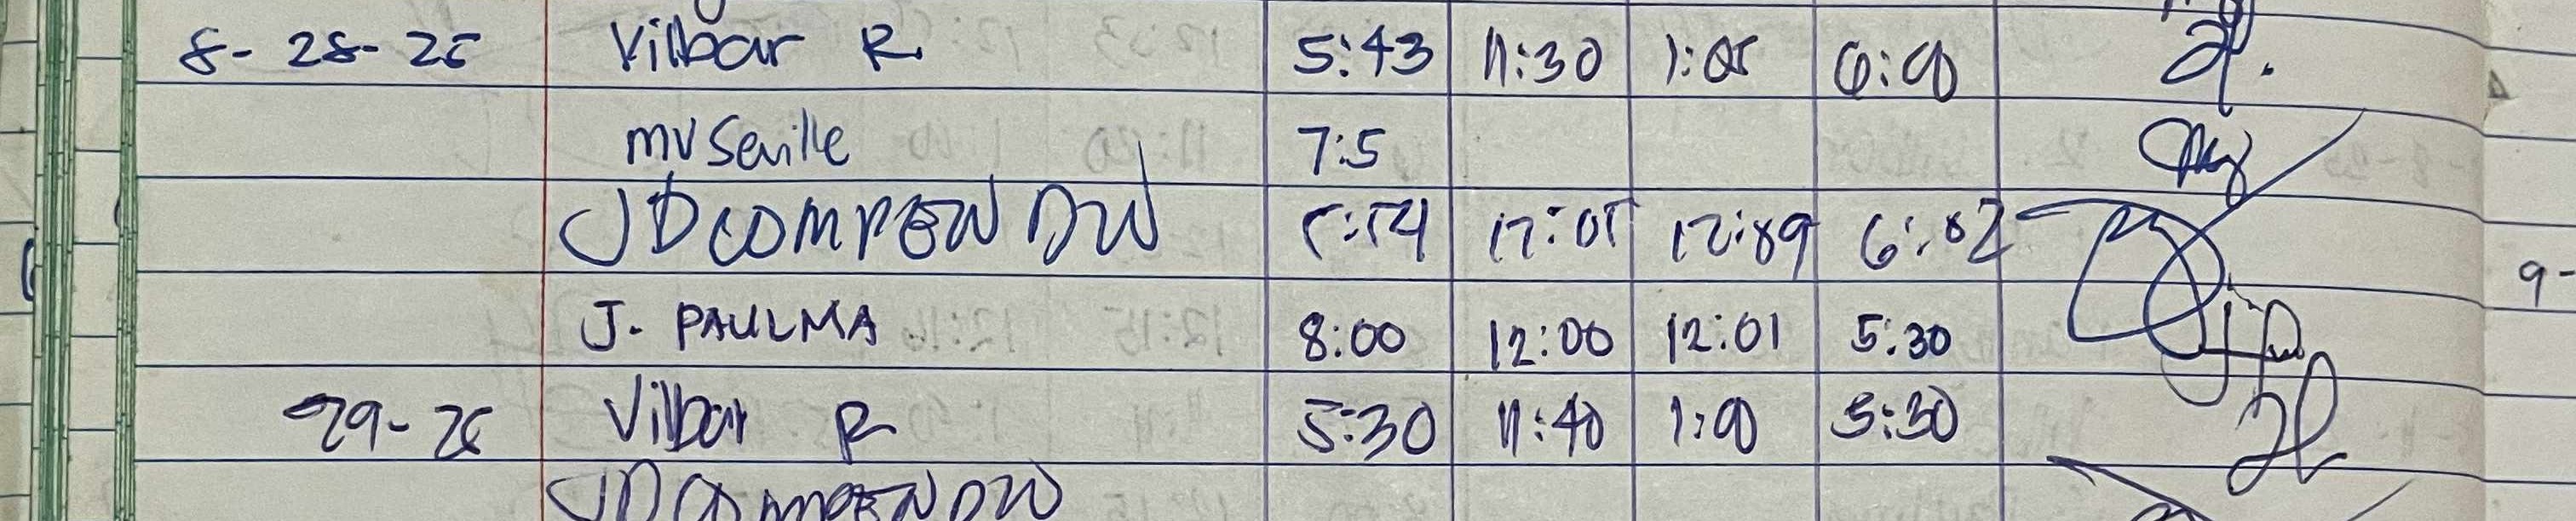 8-28-25 Vilbar R 5:43 11:30 1:05 6:00
MV Seville 7:5
JD COMPENDIW 5:54 12:05 12:59 6:02
J. PAULMA 8:00 12:00 12:01 5:30
29-25 Vilbar R 5:30 11:40 1:00 5:30
9-